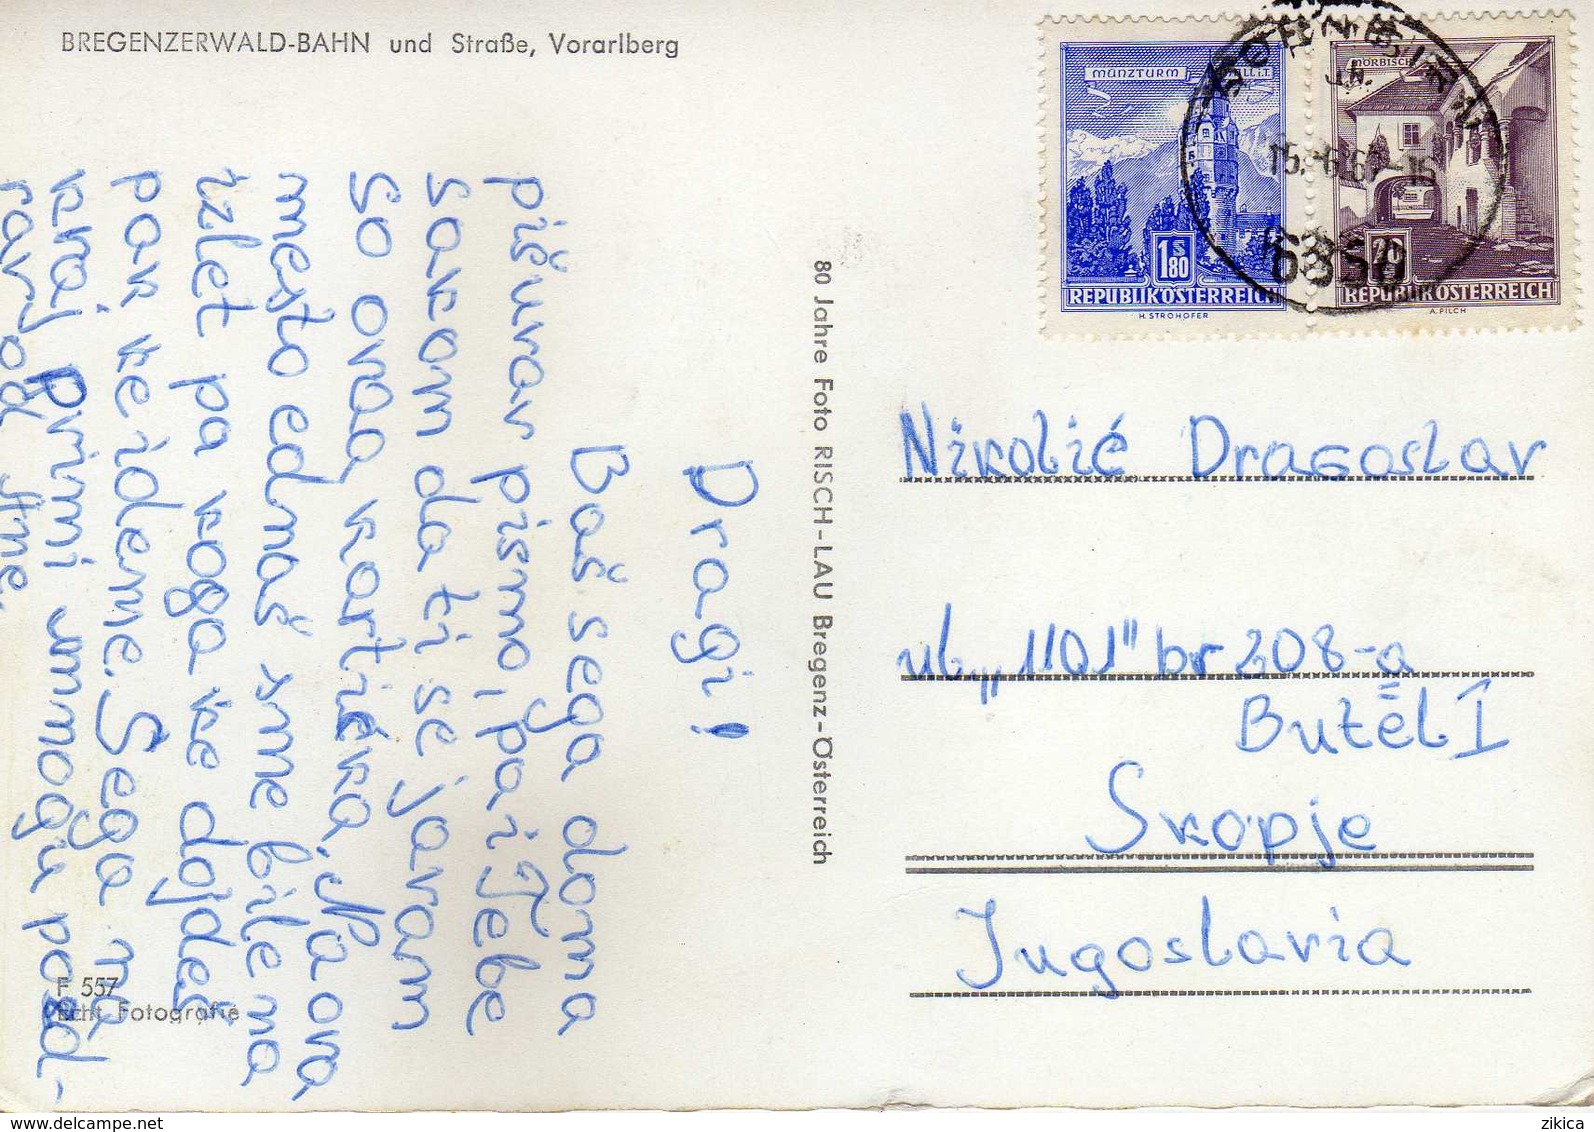 BREGENZERWALD-BAHN und Straße, Vorarlberg
MÜNZTURM
1 S 80
REPUBLIK ÖSTERREICH
H. STROHOFER
MÖRBISCH
20
REPUBLIK ÖSTERREICH
A. PILCH
6850
Dragi!
Baš sega doma
pišuvav pismo, pa i Tebe
sakam da ti se javam
so ovaa kartička. Na ova
mesto ednaš sme bile na
izlet pa koga ke dojdeš
pak ke ideme. Sega na
kraj primi ummogu pozd-
rav od
80 Jahre Foto RISCH-LAU Bregenz-Österreich
Nikolić Dragoslav
ul „1101" br 208-a
Butel I
Skopje
Jugoslavia
F 557
Echt Fotografie
zikica